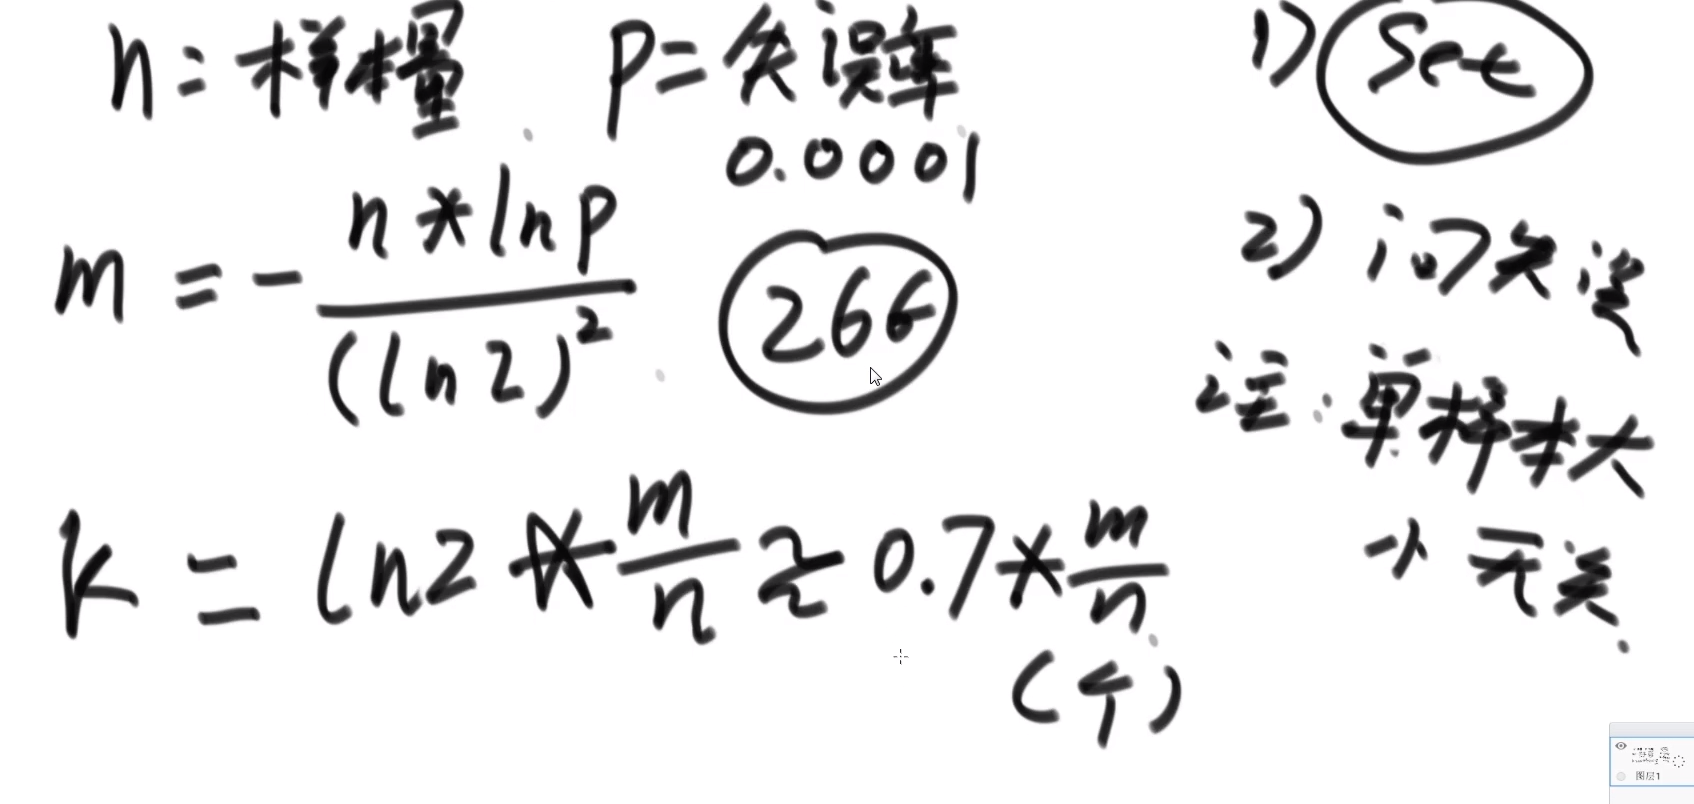 n: 样本量 p = 失误率
0.0001
m = - n * ln p / (ln 2)²
26G
k = ln2 * m/n ≈ 0.7 * m/n
(个)
1) Set
2) 问失误
注: 单样本大
小无关.
图层1